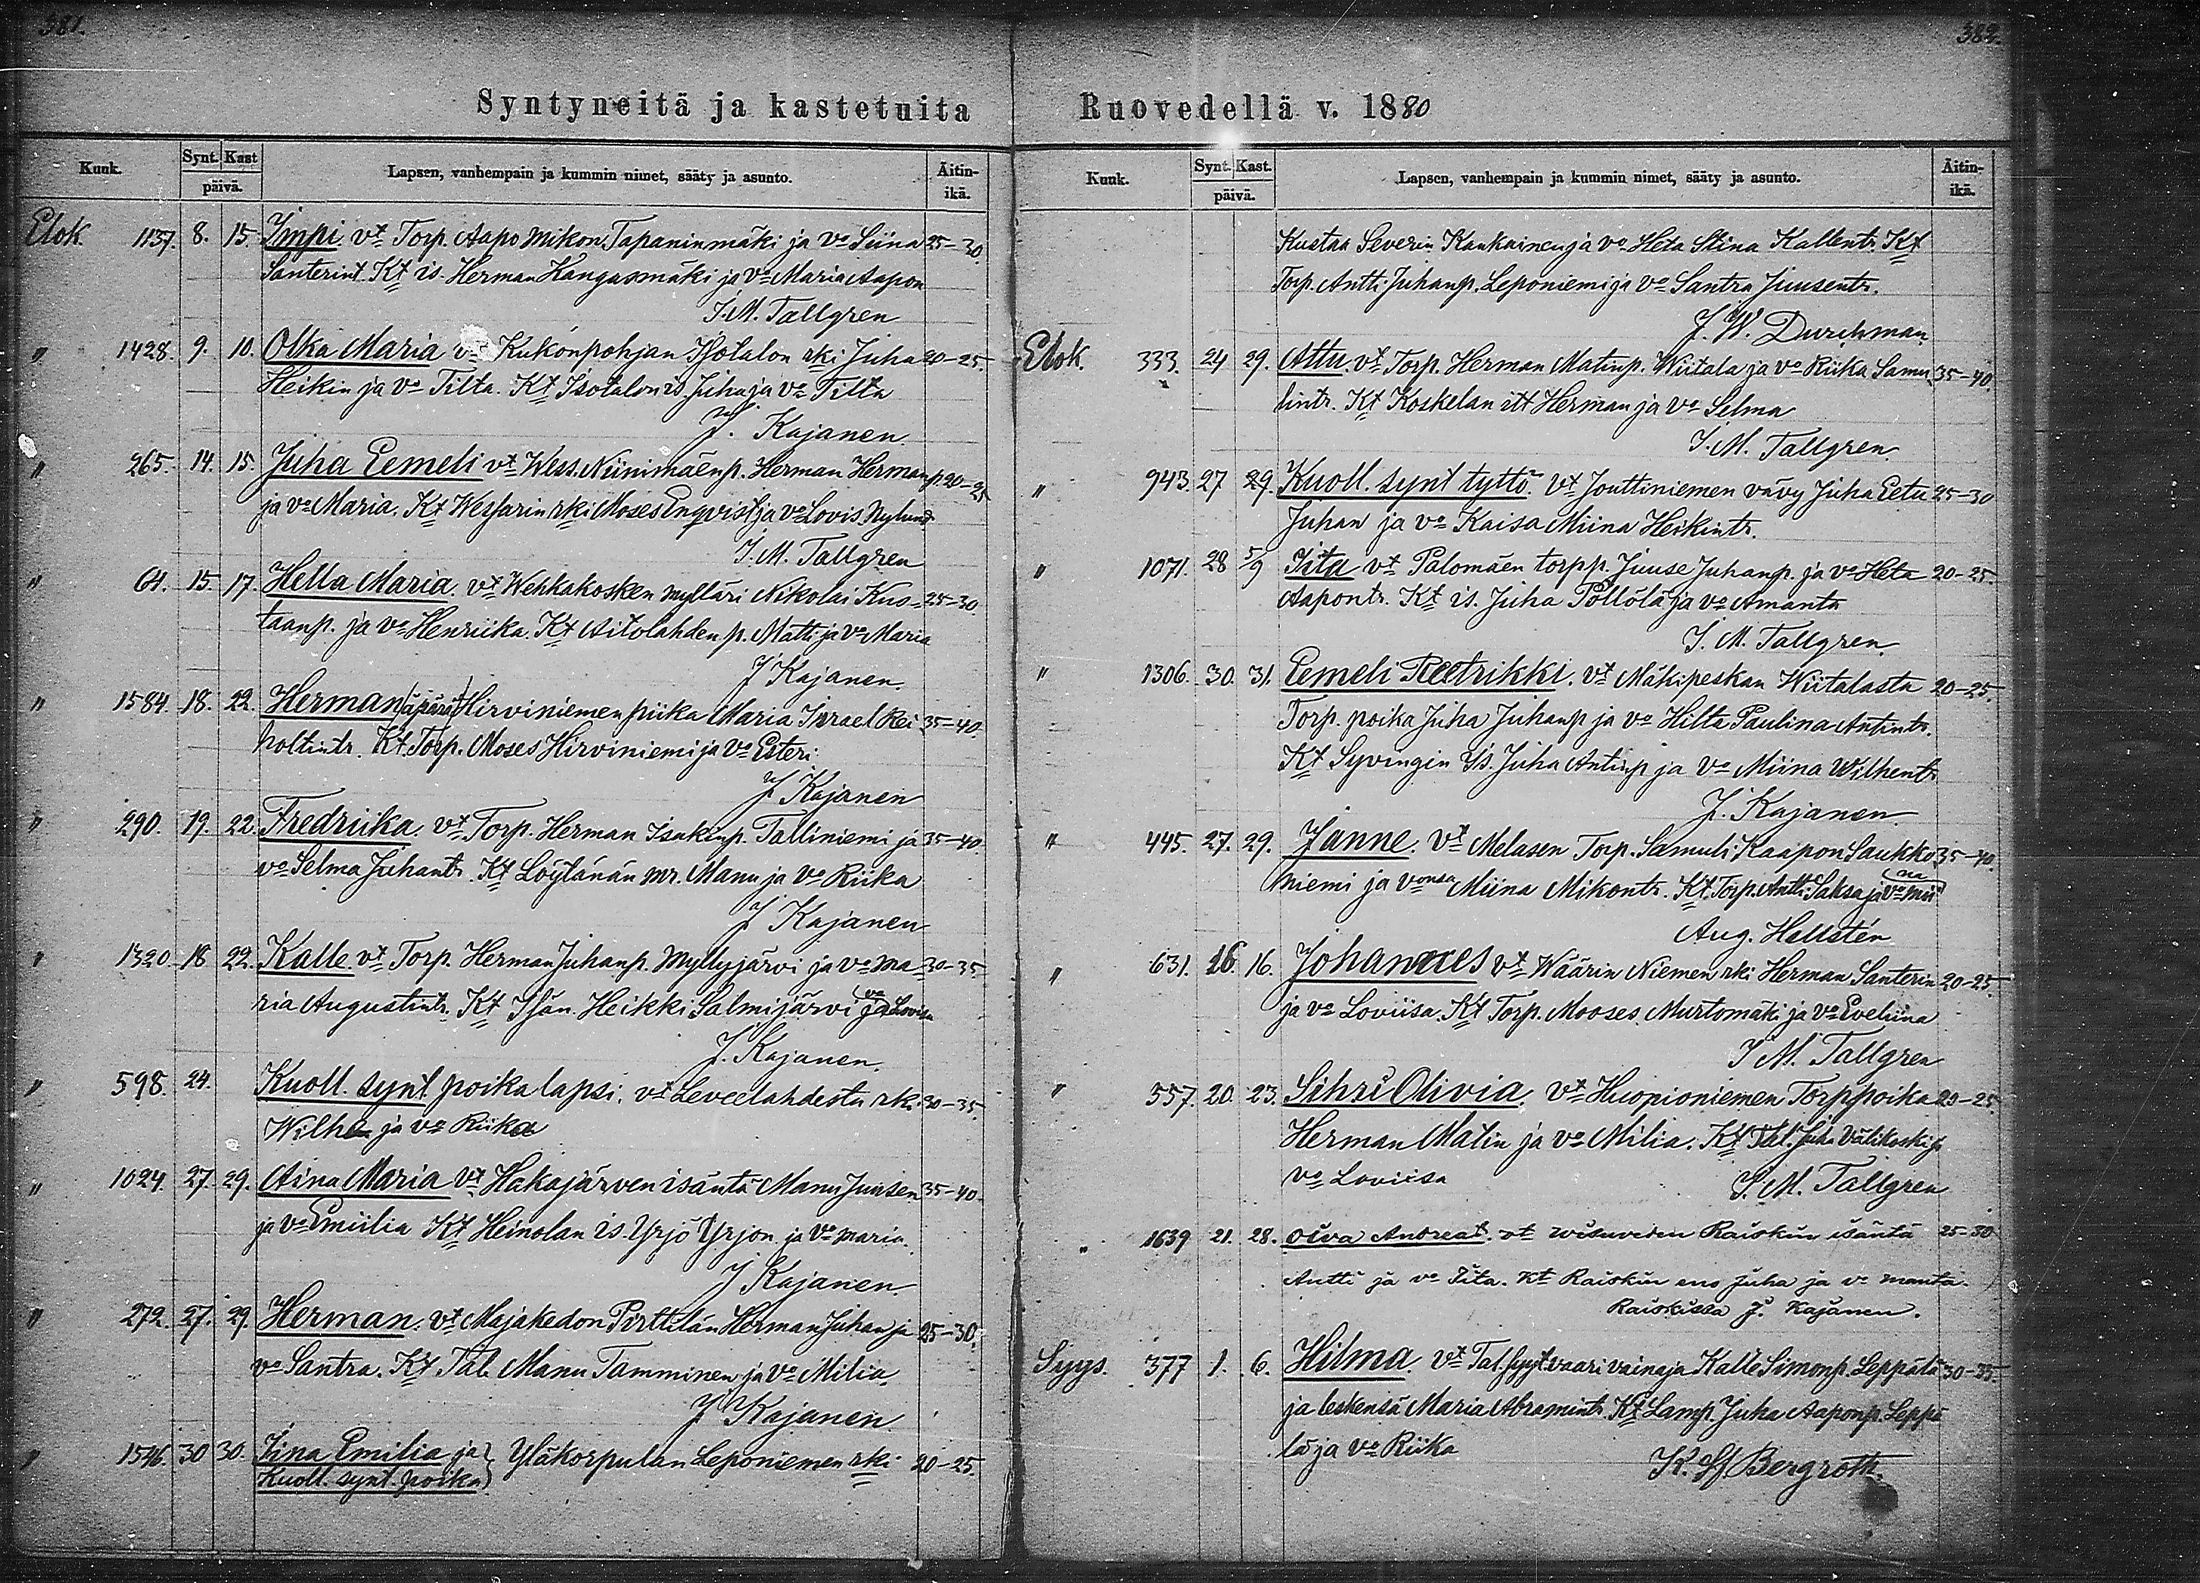 381.
Syntyneitä ja kastetuita
Kuuk. Synt. Kast päivä. Lapsen, vanhempain ja kummin nimet, sääty ja asunto. Äitin-ikä.
Elok. 1137. 8. 15. Impi. vt Torp. Aapo Mikon Tapaninmäki ja vo Liina 25-30.
Santerint. Kt is. Herman Kangasmäki ja vo Maria Aapon
I. M. Tallgren
" 1428. 9. 10. Olka Maria vt Kukonpohjan Isotalon rki Juha 20-25.
Heikin ja vo Tilta. Kt Isotalon is. Juha ja vo Tilta
J. Kajanen
" 265. 14. 15. Juha Eemeli vt Wess. Niinimäenp. Herman Hermanp. 20-25
ja vo Maria. Kt Wessarin rki Moses Enqvist ja vo Lovis Nylund
I. M. Tallgren
" 64. 15. 17. Hella Maria. vt Wehkakosken mylläri Nikolai Kus- 25-30.
taanp. ja vo Henriika. Kt Aitolahden p. Matti ja vo Maria
J Kajanen.
" 1584. 18. 22. Herman (äpärä) Hirviniemen piika Maria Israel Rei 35-40.
holtintr. Kt Torp. Moses Hirviniemi ja vo Esteri.
J. Kajanen
" 290. 19. 22. Fredriika. vt Torp. Herman Isakinp. Talliniemi ja 35-40.
vo Selma Juhantr. Kt Löytänän mr. Manu ja vo Riika
J Kajanen
" 1320. 18 22. Kalle. vt Torp. Herman Juhanp. Myllyjärvi ja vo Ma- 30-35
ria Augustintr. Kt Isän. Heikki Salmijärvi ja vo Lovisa
J. Kajanen.
" 598. 24. Kuoll. synt poikalapsi. vt Leveelahdesta rki 30-35
Wilhe ja vo Riika
" 1024. 27. 29. Aina Maria vt Hakajärven isäntä Manu Juusen 35-40.
ja vo Emiilia Kt Heinolan is. Yrjö Yrjön ja vo Maria.
J Kajanen
" 272. 27. 29. Herman. vt Majakedon Pirttilän Herman Juhan ja 25-30.
vo Santra. Kt Tal. Manu Tamminen ja vo Milia.
J Kajanen.
" 1546. 30 30. Iina Emilia ja Yläkorpulan Leponiemen rki 20-25.
Kuoll. synt. poika
382.
Ruovedellä v. 1880
Kuuk. Synt. Kast. päivä. Lapsen, vanhempain ja kummin nimet, sääty ja asunto. Äitin-ikä.
Kustaa Severin Kaukainen ja vo Heta Stina Kallentr. Kt
Torp. Antti Juhanp. Leponiemi ja vo Santra Juusentr.
J. W. Durchman.
Elok. 333. 24 29. Attu. vt Torp. Herman Matinp. Wiitala ja vo Riika Samu 35-40.
lintr. Kt Koskelan itt Herman ja vo Selma
I. M. Tallgren.
" 943. 27 29. Kuoll. synt tyttö. vt Jouttiniemen vävy Juha Eetu 25-30
Juhan ja vo Kaisa Miina Heikintr.
" 1071. 28 5/9 Iita vt Palomäen torpp. Juuse Juhanp. ja vo Heta 20-25.
Aapontr. Kt is. Juha Pöllölä ja vo Amanta
I. M. Tallgren.
" 1306. 30. 31. Eemeli Reetrikki. vt Mäkipeskan Wiitalasta 20-25.
Torp. poika Juha Juhanp ja vo Hilta Paulina Antintr.
Kt Syvingin is. Juha Antinp ja vo Miina Wilhentr
J. Kajanen.
" 445. 27. 29. Janne. vt Melasen Torp. Samuli Kaapon Saukko 35-40.
niemi ja vonsa Miina Mikontr. Kt Torp. Antti Saksa ja vo Miina
Aug. Hellstén
" 631. 16. 16. Johannes vt Väärin Niemen rki Herman Santerin 20-25.
ja vo Loviisa. Kt Torp. Mooses Murtomäki ja vo Eveliina
I M. Tallgren
" 557. 20. 23. Sihri Olivia. vt Huopioniemen Torppoika 20-25.
Herman Matin ja vo Milia. Kt Tal. Juha Välikoski ja
vo Loviisa I. M. Tallgren
" 1639 21. 28. Oiva Andreas. vt Wisuveden Raiskin isäntä 25-30
Antti ja vo Iita. Kt Raiskin eno Juha ja vo Manta.
Raiskissa J. Kajanen.
Syys. 377 1. 6. Hilma. vt Tal. syyt.vaari vainaja Kalle Simonp. Leppälä 30-35.
ja leskensä Maria Abramintr. Kt Lamp. Juha Aaponp. Leppä
lä ja vo Riika K. Hj Bergroth.